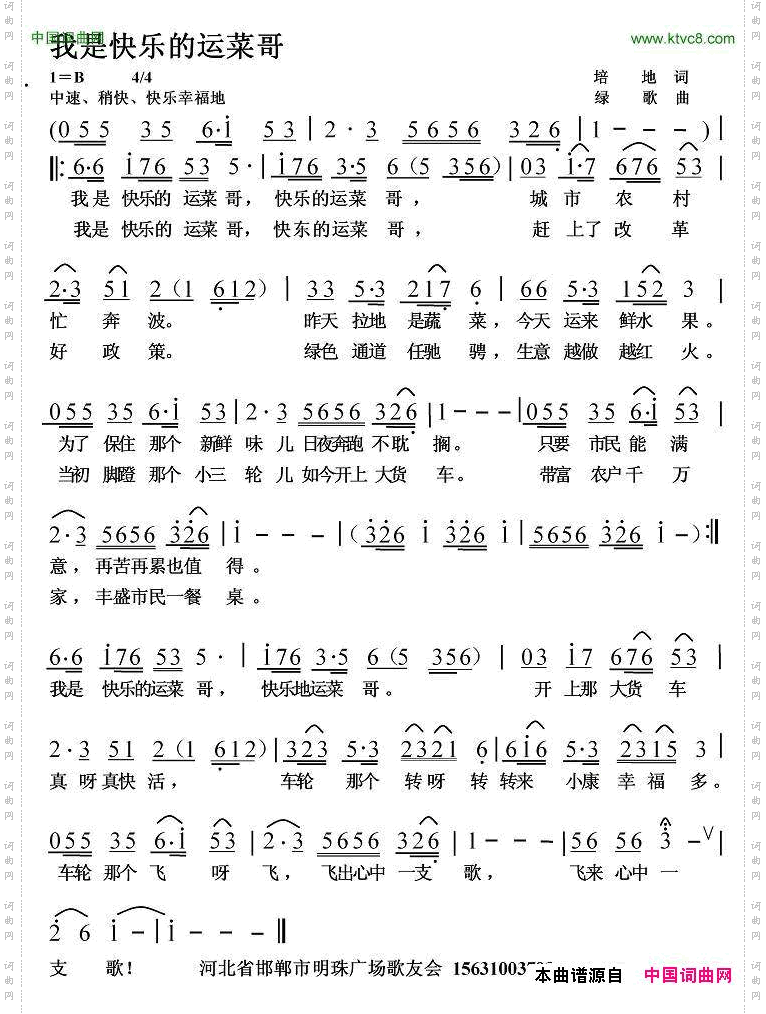 中国词曲网
我是快乐的运菜哥
www.ktvc8.com
1=B 4/4
培 地 词
中速、稍快、快乐幸福地
绿 歌 曲
(055 35 6·i 53 | 2·3 5656 326 | 1 - - -)
‖: 6·6 i76 53 5· | i76 3·5 6 (5 356) | 03 i·7 676 53
我是 快乐的 运菜 哥, 快乐的 运菜 哥, 城 市 农 村
我是 快乐的 运菜 哥, 快东的 运菜 哥, 赶 上了 改 革
2·3 51 2 (1 612) | 33 5·3 217 6 | 66 5·3 152 3 |
忙 奔 波。 昨天 拉地 是蔬 菜, 今天 运来 鲜水 果。
好 政 策。 绿色 通道 任驰 骋, 生意 越做 越红 火。
055 35 6·i 53 | 2·3 5656 326 | 1 - - - | 055 35 6·i 53
为了 保住 那个 新鲜 味 儿 日夜奔跑 不耽 搁。 只要 市民 能 满
当初 脚蹬 那个 小三 轮 儿 如今开上 大货 车。 带富 农户 千 万
2·3 5656 326 | i - - - | (326 i 326 i | 5656 326 i -) :‖
意, 再苦再累也值 得。
家, 丰盛市民一餐 桌。
6·6 i76 53 5· | i76 3·5 6 (5 356) | 03 i7 676 53 |
我是 快乐的运菜 哥, 快乐地运菜 哥。 开 上那 大货 车
2·3 51 2 (1 612) | 323 5·3 2321 6 | 6i6 5·3 2315 3 |
真 呀真快 活, 车轮 那个 转呀 转 转来 小康 幸福 多。
055 35 6·i 53 | 2·3 5656 326 | 1 - - - | 56 56 3 - ∨ |
车轮 那个 飞 呀 飞, 飞出心中 一支 歌, 飞来 心中 一
2 6 i - | i - ‖
支 歌! 河北省邯郸市明珠广场歌友会 15631003
本曲谱源自 中国词曲网